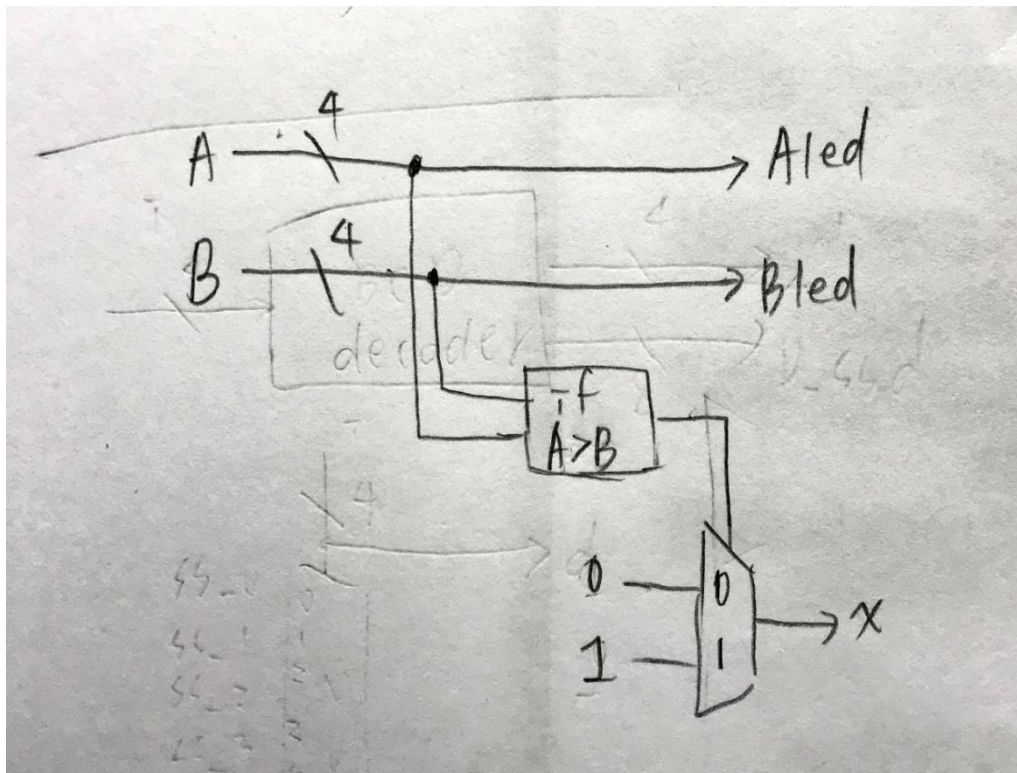 4
A
Aled
4
B
Bled
decoder
if
A>B
4
0
0
1
1
x